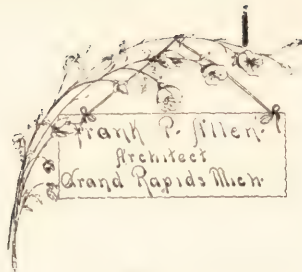 Frank P. Allen.
Architect
Grand Rapids Mich.